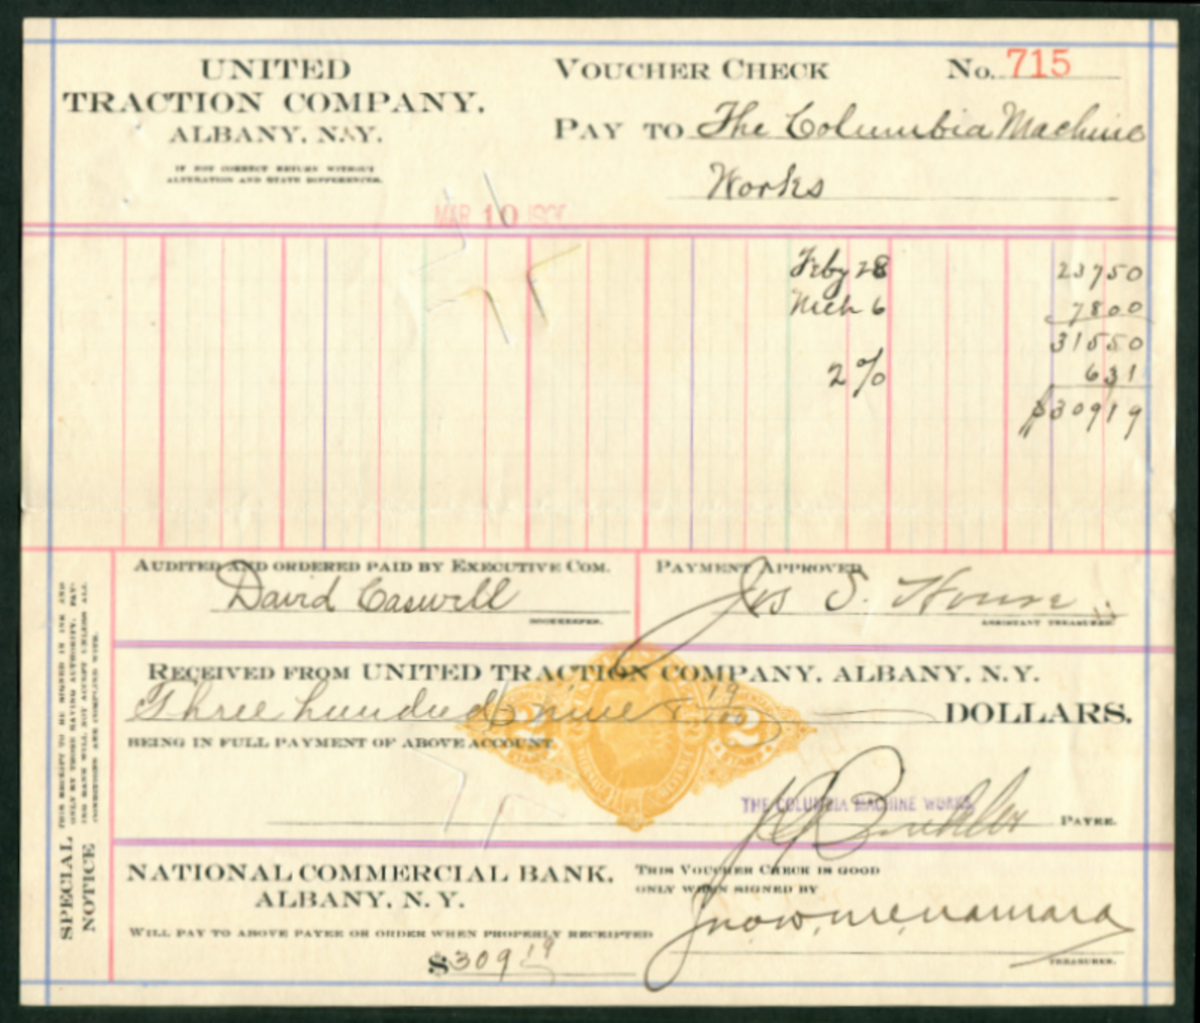 UNITED
TRACTION COMPANY.
ALBANY, N.Y.
IF NOT CORRECT RETURN WITHOUT
ALTERATION AND STATE DIFFERENCES.
VOUCHER CHECK No. 715
PAY TO The Columbia Machine
Works
MAR 10
Feby 28 23750
Mch 6 7800
31550
2% 631
$30919
AUDITED AND ORDERED PAID BY EXECUTIVE COM.
David Caswell
BOOKKEEPER.
PAYMENT APPROVED
Jos S.
ASSISTANT TREASURER.
RECEIVED FROM UNITED TRACTION COMPANY, ALBANY, N.Y.
Three hundred nine & 19/100 DOLLARS.
BEING IN FULL PAYMENT OF ABOVE ACCOUNT.
2 2
THE COLUMBIA MACHINE WORKS
PAYEE.
SPECIAL NOTICE
THIS RECEIPT TO BE SIGNED IN INK AND
ONLY BY THOSE HAVING AUTHORITY. PAY-
ING BANK WILL NOT ACCEPT UNLESS ALL
CONDITIONS ARE COMPLIED WITH.
NATIONAL COMMERCIAL BANK,
ALBANY, N.Y.
WILL PAY TO ABOVE PAYEE OR ORDER WHEN PROPERLY RECEIPTED
$309 19
THIS VOUCHER CHECK IS GOOD
ONLY WHEN SIGNED BY
Jno. W. McNamara
TREASURER.